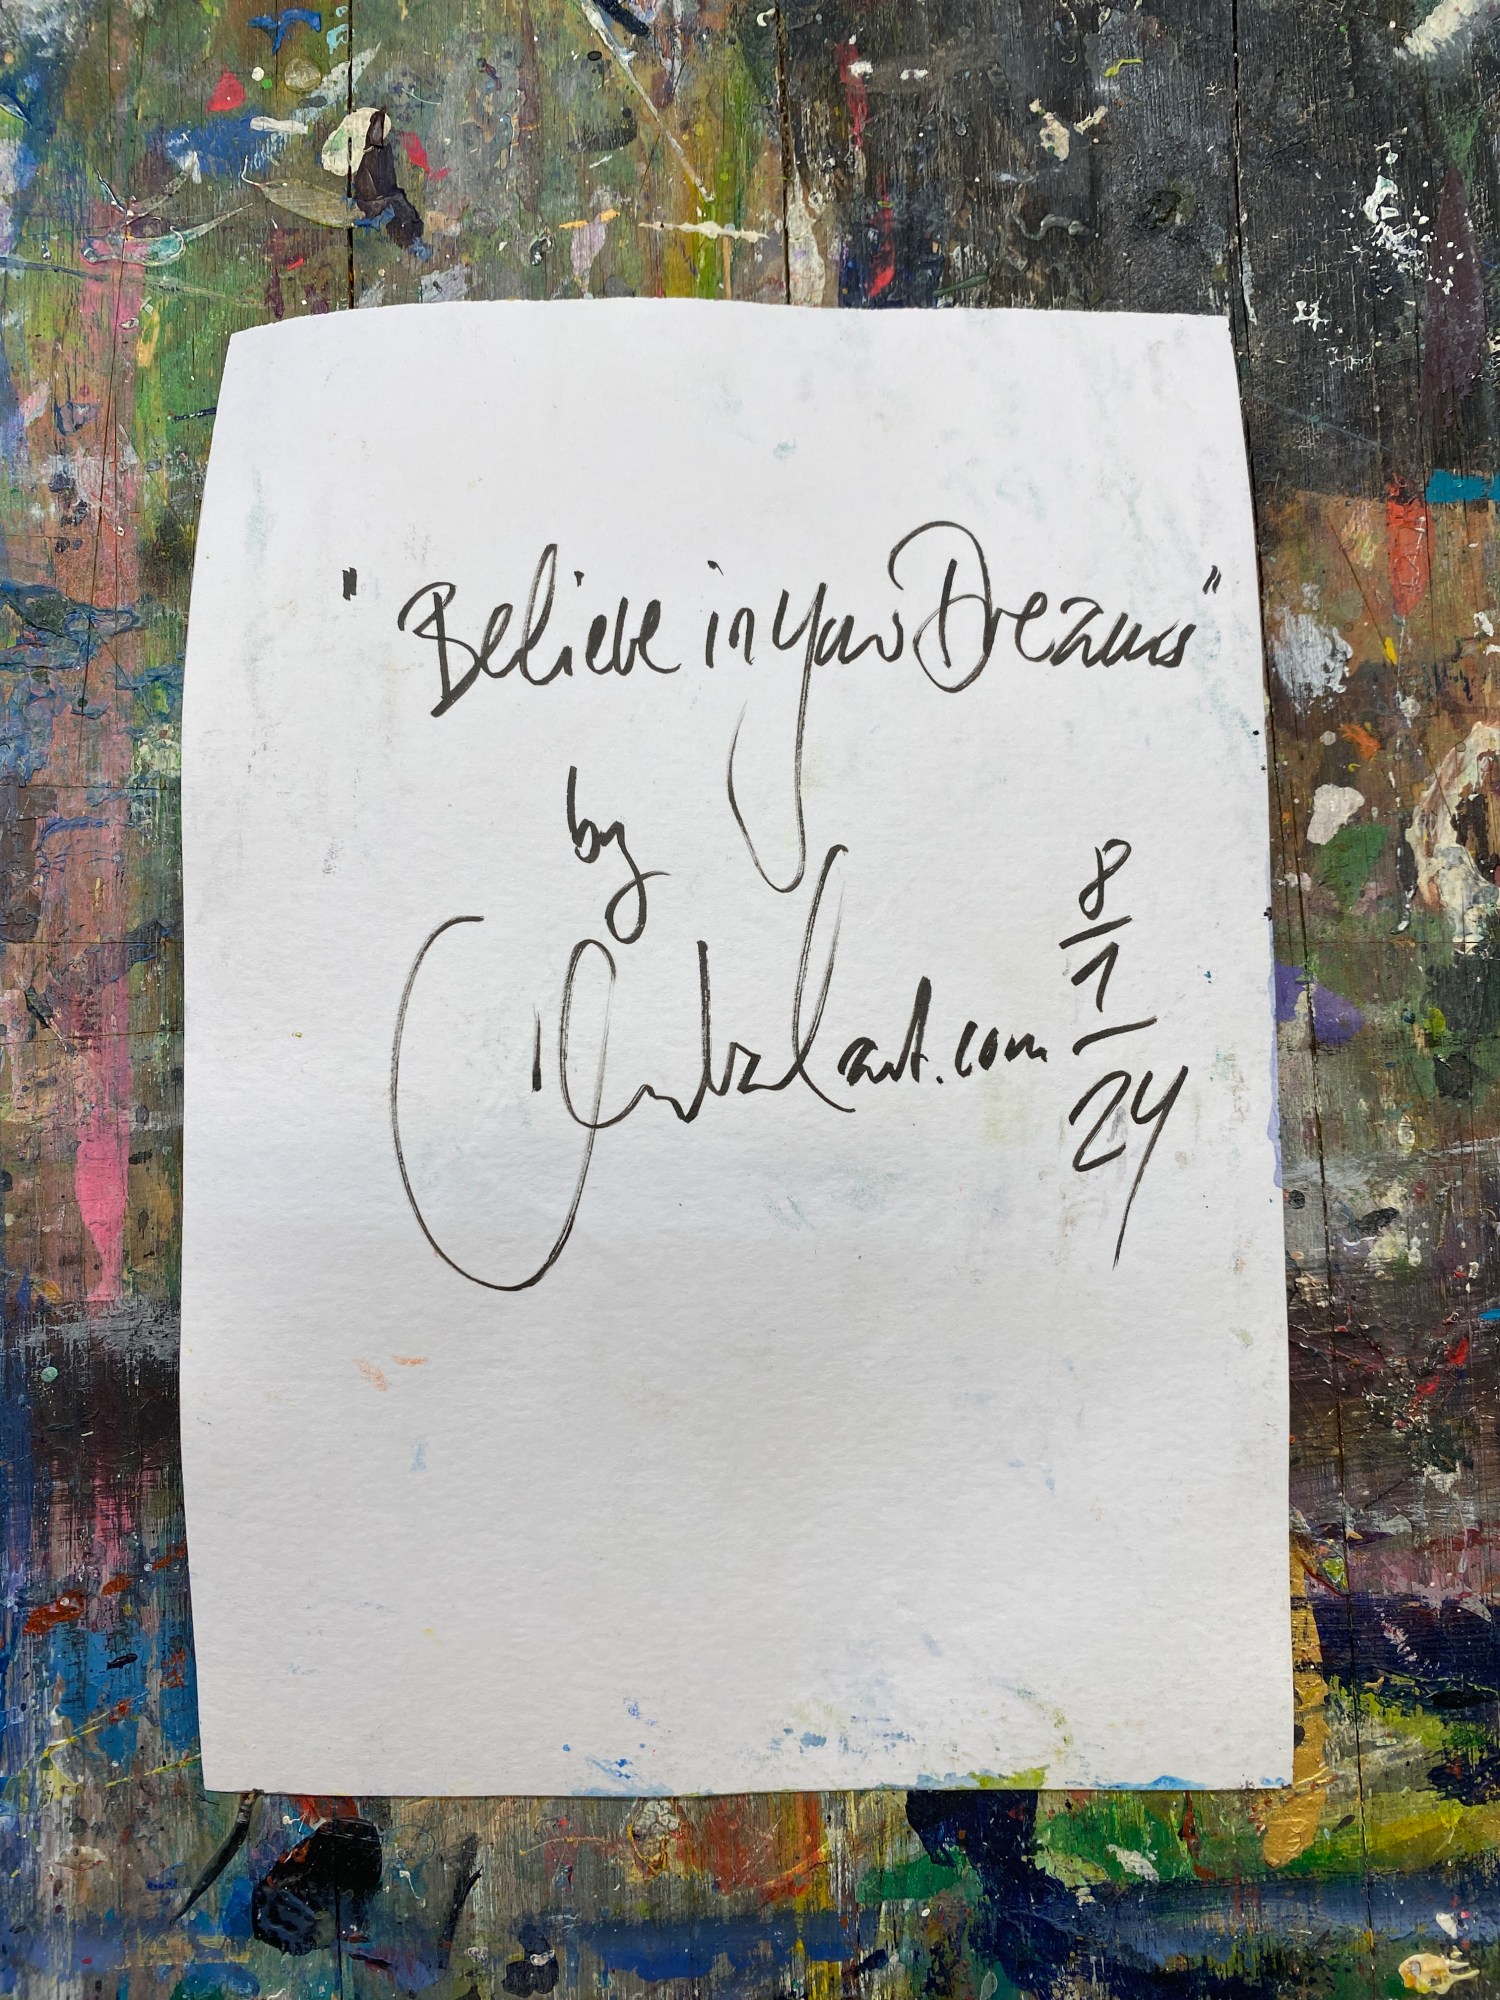 "Believe in your Dreams"
by
art.com
8/1/24